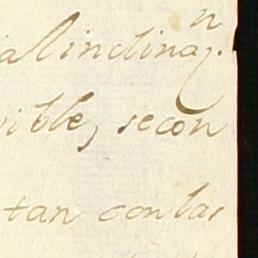 alinclinaz.n
ible, secon
tan conlas